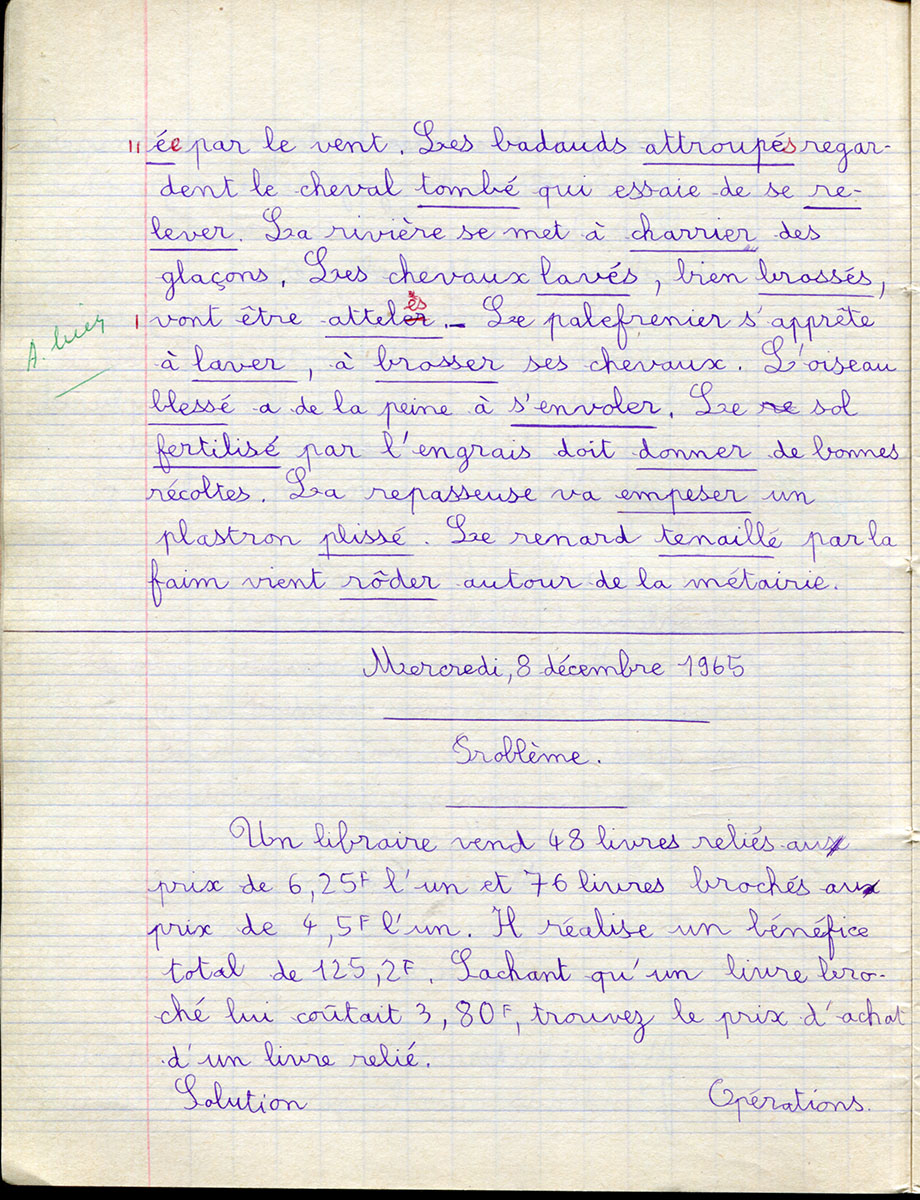 ée par le vent. Les badauds attroupés regar-
dent le cheval tombé qui essaie de se re-
lever. La rivière se met à charrier des
glaçons. Les chevaux lavés, bien brossés,
vont être attelés. _ Le palefrenier s'apprête
à laver, à brosser ses chevaux. L'oiseau
blessé a de la peine à s'envoler. Le sol
fertilisé par l'engrais doit donner de bonnes
récoltes. La repasseuse va empeser un
plastron plissé. Le renard tenaillé par la
faim vient rôder autour de la métairie.
Mercredi, 8 décembre 1965
Problème.
Un libraire vend 48 livres reliés au
prix de 6,25F l'un et 76 livres brochés au
prix de 4,5F l'un. Il réalise un bénéfice
total de 125,2F. Sachant qu'un livre bro-
ché lui coûtait 3,80F, trouvez le prix d'achat
d'un livre relié.
Solution Opérations.